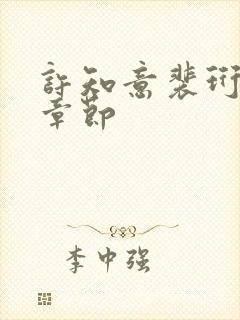 許知意裴珩
章節
李中强